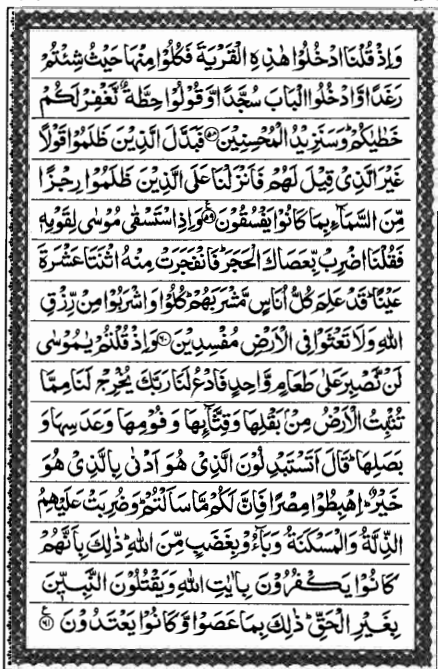 وَاِذْ قُلْنَا ادْخُلُوْا هٰذِهِ الْقَرْيَةَ فَكُلُوْا مِنْهَا حَيْثُ شِئْتُمْ
رَغَدًا وَّادْخُلُوا الْبَابَ سُجَّدًا وَّقُوْلُوْا حِطَّةٌ نَّغْفِرْ لَكُمْ
خَطٰيٰكُمْ ؕ وَسَنَزِيْدُ الْمُحْسِنِيْنَ ﴿۵۸﴾ فَبَدَّلَ الَّذِيْنَ ظَلَمُوْا قَوْلًا
غَيْرَ الَّذِيْ قِيْلَ لَهُمْ فَاَنْزَلْنَا عَلَى الَّذِيْنَ ظَلَمُوْا رِجْزًا
مِّنَ السَّمَآءِ بِمَا كَانُوْا يَفْسُقُوْنَ ﴿۵۹﴾ ع وَاِذِ اسْتَسْقٰى مُوْسٰى لِقَوْمِهٖ
فَقُلْنَا اضْرِبْ بِّعَصَاكَ الْحَجَرَ ؕ فَانْفَجَرَتْ مِنْهُ اثْنَتَا عَشْرَةَ
عَيْنًا ؕ قَدْ عَلِمَ كُلُّ اُنَاسٍ مَّشْرَبَهُمْ ؕ كُلُوْا وَاشْرَبُوْا مِنْ رِّزْقِ
اللّٰهِ وَلَا تَعْثَوْا فِى الْاَرْضِ مُفْسِدِيْنَ ﴿۶۰﴾ وَاِذْ قُلْتُمْ يٰمُوْسٰى
لَنْ نَّصْبِرَ عَلٰى طَعَامٍ وَّاحِدٍ فَادْعُ لَنَا رَبَّكَ يُخْرِجْ لَنَا مِمَّا
تُنْۢبِتُ الْاَرْضُ مِنْۢ بَقْلِهَا وَقِثَّآئِهَا وَفُوْمِهَا وَعَدَسِهَا وَ
بَصَلِهَا ؕ قَالَ اَتَسْتَبْدِلُوْنَ الَّذِيْ هُوَ اَدْنٰى بِالَّذِيْ هُوَ
خَيْرٌ ؕ اِهْبِطُوْا مِصْرًا فَاِنَّ لَكُمْ مَّا سَاَلْتُمْ ؕ وَضُرِبَتْ عَلَيْهِمُ
الذِّلَّةُ وَالْمَسْكَنَةُ وَبَآءُوْ بِغَضَبٍ مِّنَ اللّٰهِ ؕ ذٰلِكَ بِاَنَّهُمْ
كَانُوْا يَكْفُرُوْنَ بِاٰيٰتِ اللّٰهِ وَيَقْتُلُوْنَ النَّبِيّٖنَ
بِغَيْرِ الْحَقِّ ؕ ذٰلِكَ بِمَا عَصَوْا وَّكَانُوْا يَعْتَدُوْنَ ﴿۶۱﴾ ع